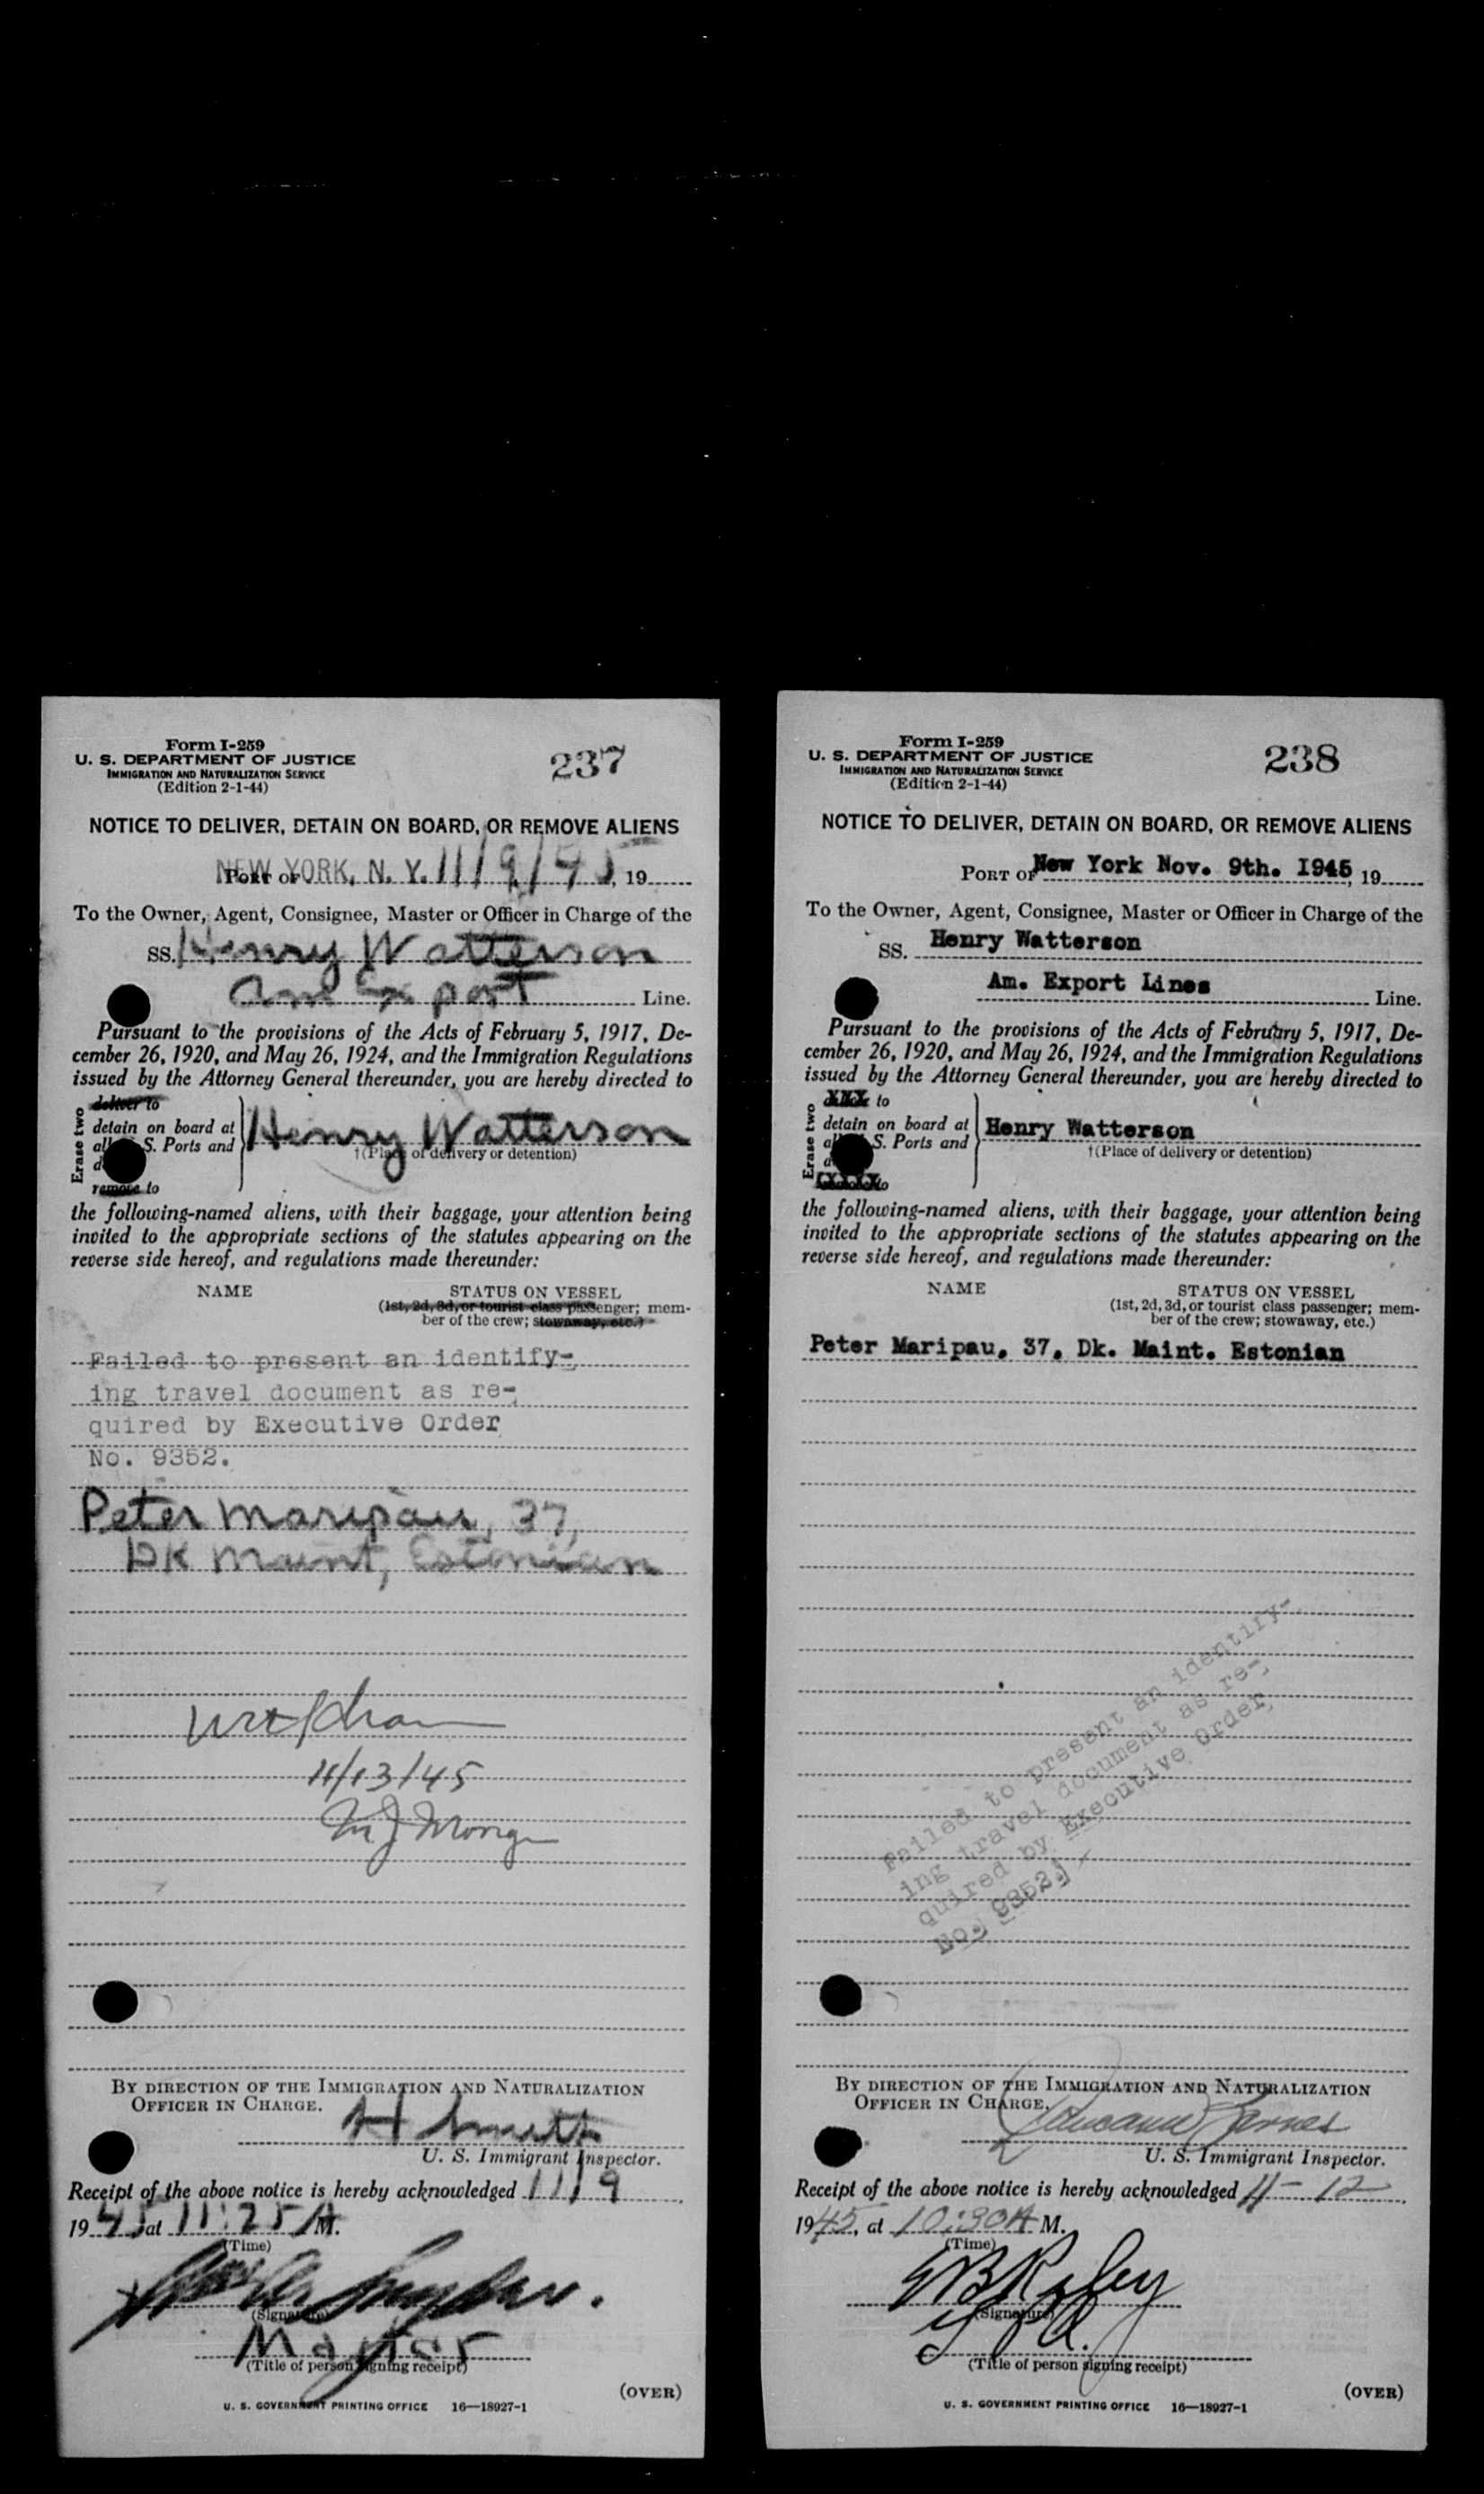 Form I-259
U. S. DEPARTMENT OF JUSTICE
IMMIGRATION AND NATURALIZATION SERVICE
(Edition 2-1-44)
237
NOTICE TO DELIVER, DETAIN ON BOARD, OR REMOVE ALIENS
NEW YORK, N. Y. 11/9/45, 19
PORT OF
To the Owner, Agent, Consignee, Master or Officer in Charge of the
SS. Henry Watterson
Am Export Line.
Pursuant to the provisions of the Acts of February 5, 1917, De-
cember 26, 1920, and May 26, 1924, and the Immigration Regulations
issued by the Attorney General thereunder, you are hereby directed to
Erase two
deliver to
detain on board at
all S. Ports and
remove to
Henry Watterson
†(Place of delivery or detention)
the following-named aliens, with their baggage, your attention being
invited to the appropriate sections of the statutes appearing on the
reverse side hereof, and regulations made thereunder:
NAME STATUS ON VESSEL
(1st, 2d, 3d, or tourist class passenger; mem-
ber of the crew; stowaway, etc.)
Failed to present an identify-
ing travel document as re-
quired by Executive Order
No. 9352.
Peter Maripau, 37,
DK Maint, Estonian
11/13/45
BY DIRECTION OF THE IMMIGRATION AND NATURALIZATION
OFFICER IN CHARGE.
U. S. Immigrant Inspector.
Receipt of the above notice is hereby acknowledged 11/9
1945 at 11:25 A M.
(Time)
(Signature)
Master
(Title of person signing receipt)
(OVER)
U. S. GOVERNMENT PRINTING OFFICE 16—18927-1
Form I-259
U. S. DEPARTMENT OF JUSTICE
IMMIGRATION AND NATURALIZATION SERVICE
(Edition 2-1-44)
238
NOTICE TO DELIVER, DETAIN ON BOARD, OR REMOVE ALIENS
PORT OF New York Nov. 9th. 1945, 19
To the Owner, Agent, Consignee, Master or Officer in Charge of the
SS. Henry Watterson
Am. Export Lines Line.
Pursuant to the provisions of the Acts of February 5, 1917, De-
cember 26, 1920, and May 26, 1924, and the Immigration Regulations
issued by the Attorney General thereunder, you are hereby directed to
Erase two
XXX to
detain on board at
S. Ports and
XXXXX to
Henry Watterson
†(Place of delivery or detention)
the following-named aliens, with their baggage, your attention being
invited to the appropriate sections of the statutes appearing on the
reverse side hereof, and regulations made thereunder:
NAME STATUS ON VESSEL
(1st, 2d, 3d, or tourist class passenger; mem-
ber of the crew; stowaway, etc.)
Peter Maripau, 37, Dk. Maint. Estonian
Failed to present an identify-
ing travel document as re-
quired by Executive Order
No. 9352.
BY DIRECTION OF THE IMMIGRATION AND NATURALIZATION
OFFICER IN CHARGE.
U. S. Immigrant Inspector.
Receipt of the above notice is hereby acknowledged 11-12
1945, at 10:30A M.
(Time)
(Signature)
(Title of person signing receipt)
(OVER)
U. S. GOVERNMENT PRINTING OFFICE 16—18927-1